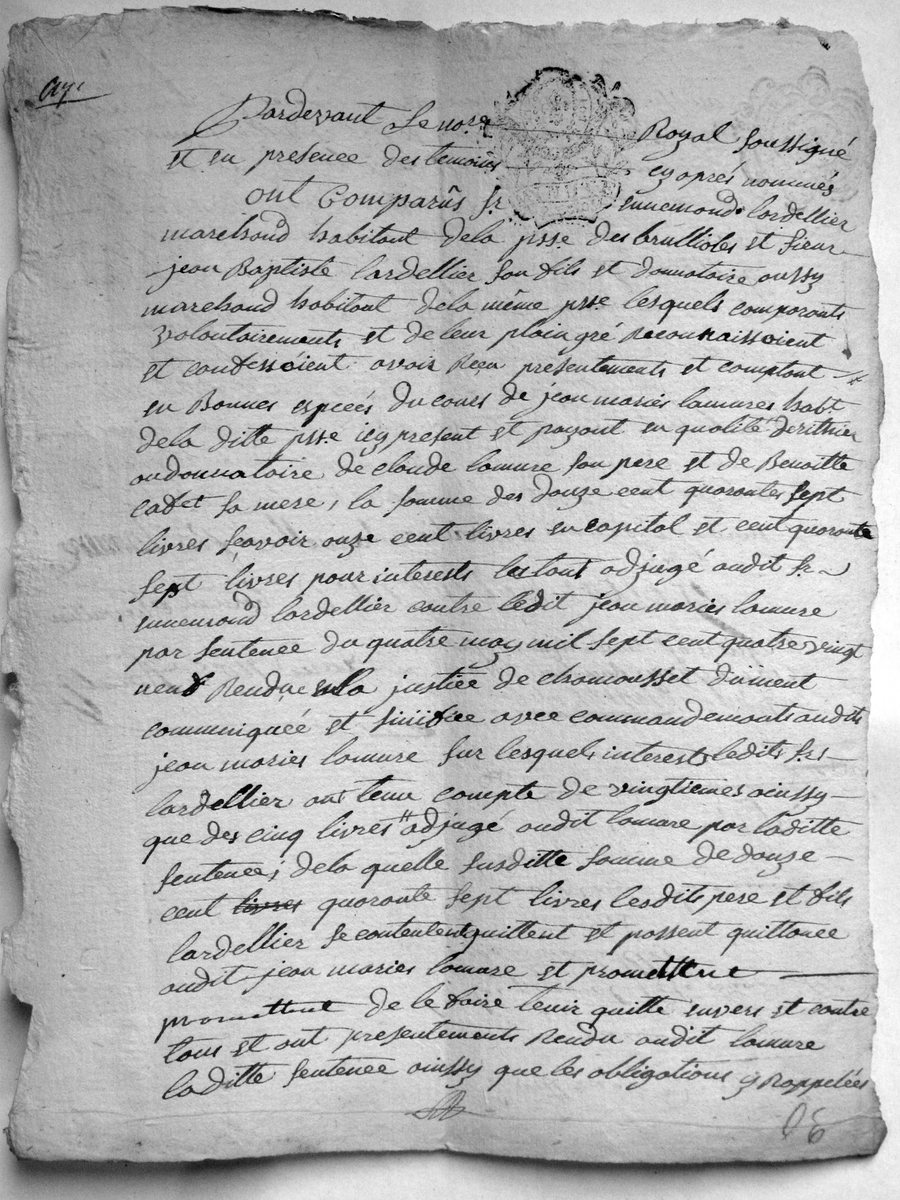 Pardevant Le no.re Royal soussigné
et en presence des temoins cy aprés nommés
ont Comparûs sr. ennemond lardellier
marchand habitant dela psse des brullioles et sieur
jean Baptiste lardellier son fils et donnataire aussy
marchand habitant dela même psse. lesquels comparants
volontairements et de leur plain gré reconnaissoient
et confessoient avoir Reçu presentements et comptant
en Bonnes especés du cours de jean maries lamures habt.
dela ditte psse icy present et payant en qualité deritier
ou donnataire de claude lamure son pere et de Benoitte
cadet sa mere, la somme des douze cent quarantes sept
livres scavoir onze cent livres en capital et cent quarante
sept livres pour interests les tout adjugé audit sr.
ennemond lardellier contre ledit jean maries lamure
par sentence du quatre may mil sept cent quatre vingt
neuf Rendue en la justice de chamousset düment
communiqueé et siniifiee avec commandements audits
jean maries lamure sur lesquels interests ledits srs
lardellier ont tenu compte de vingtiemes ainssy
que des cinq livres " adjugé audit lamure par laditte
sentence; dela quelle susditte somme de douze
cent livres quarante sept livres lesdits pere et fils
lardellier se contentent quittent et passent quittance
audit jean maries lamure et promettent
promettent de le faire tenir quitte envers et contre
tous et ont presentements Rendu audit lamure
laditte sentence ainssy que les obligations y Rappelées